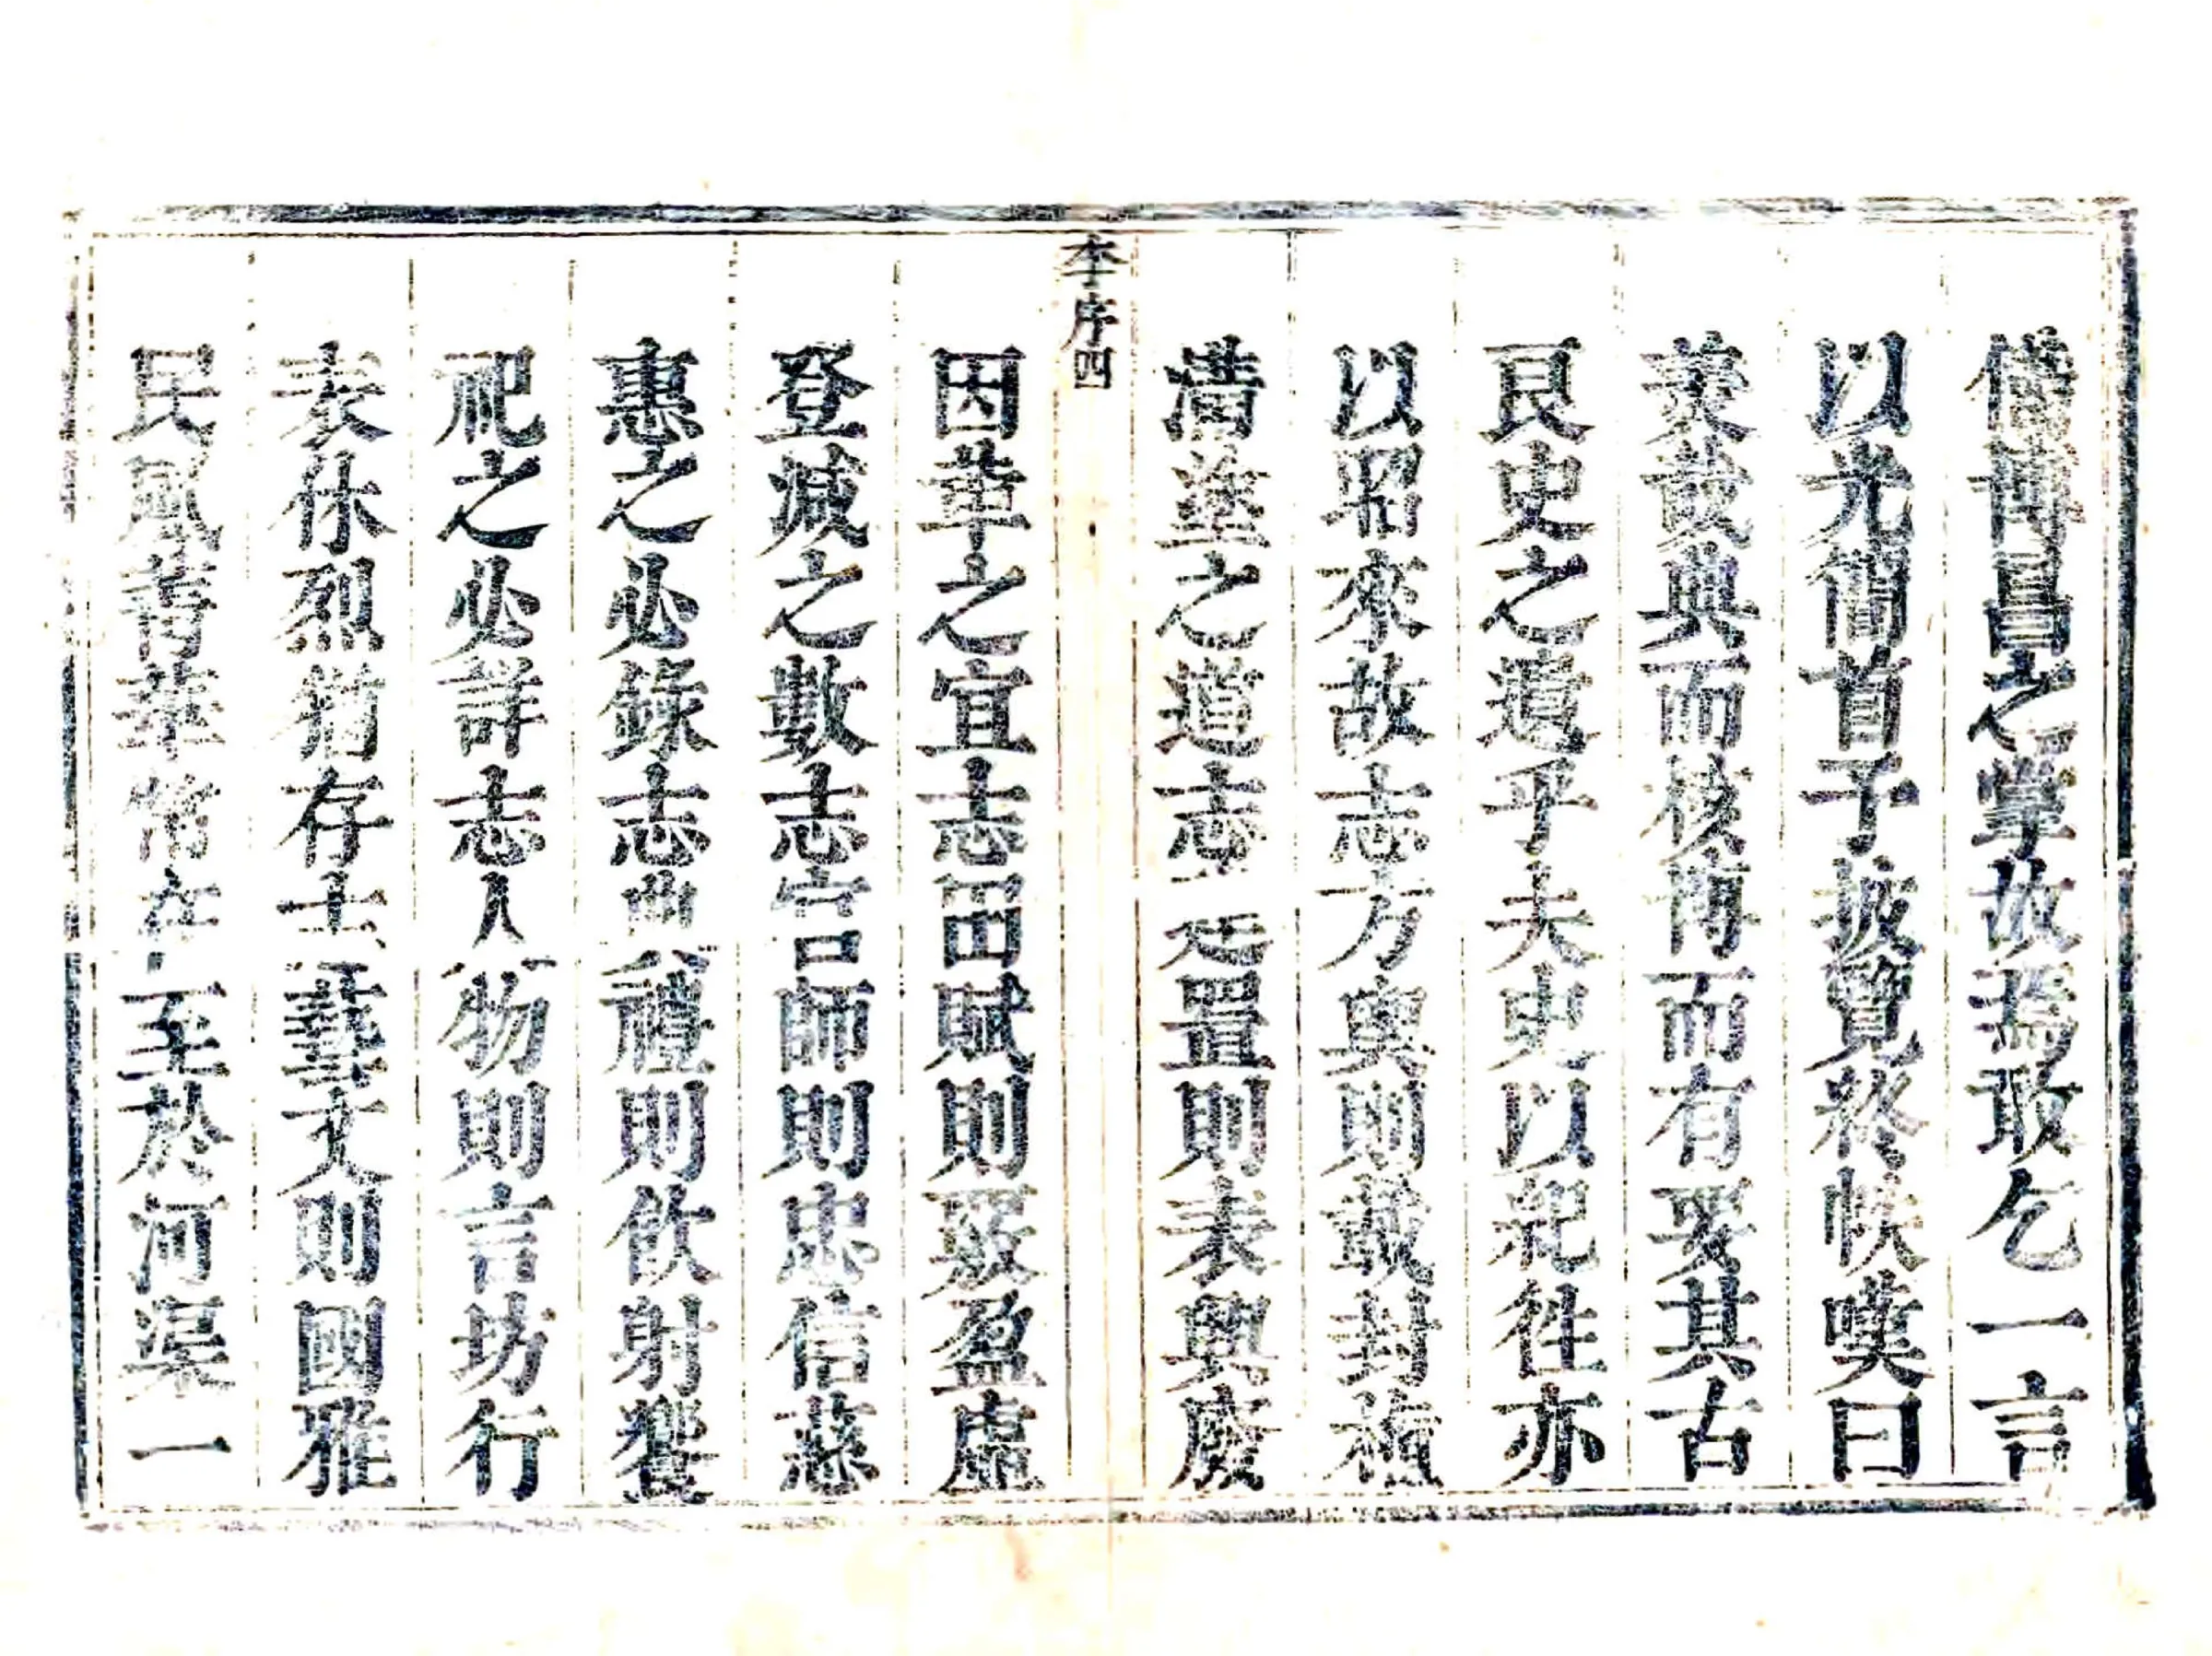 備博昌之掌故焉敢乞一言
以光簡首予披覽終帙嘆曰
美哉典而核博而有要其古
良史之遺乎夫史以紀往亦
以昭來故志方輿則載封植
溝塗之道志建置則表興廢
李序四
因革之宜志田賦則嚴盈虛
登減之數志官師則忠信慈
惠之必錄志典禮則飲射饗
祀之必詳志人物則言坊行
表休烈猶存士藝文則國雅
民風菁華備在至於河渠一